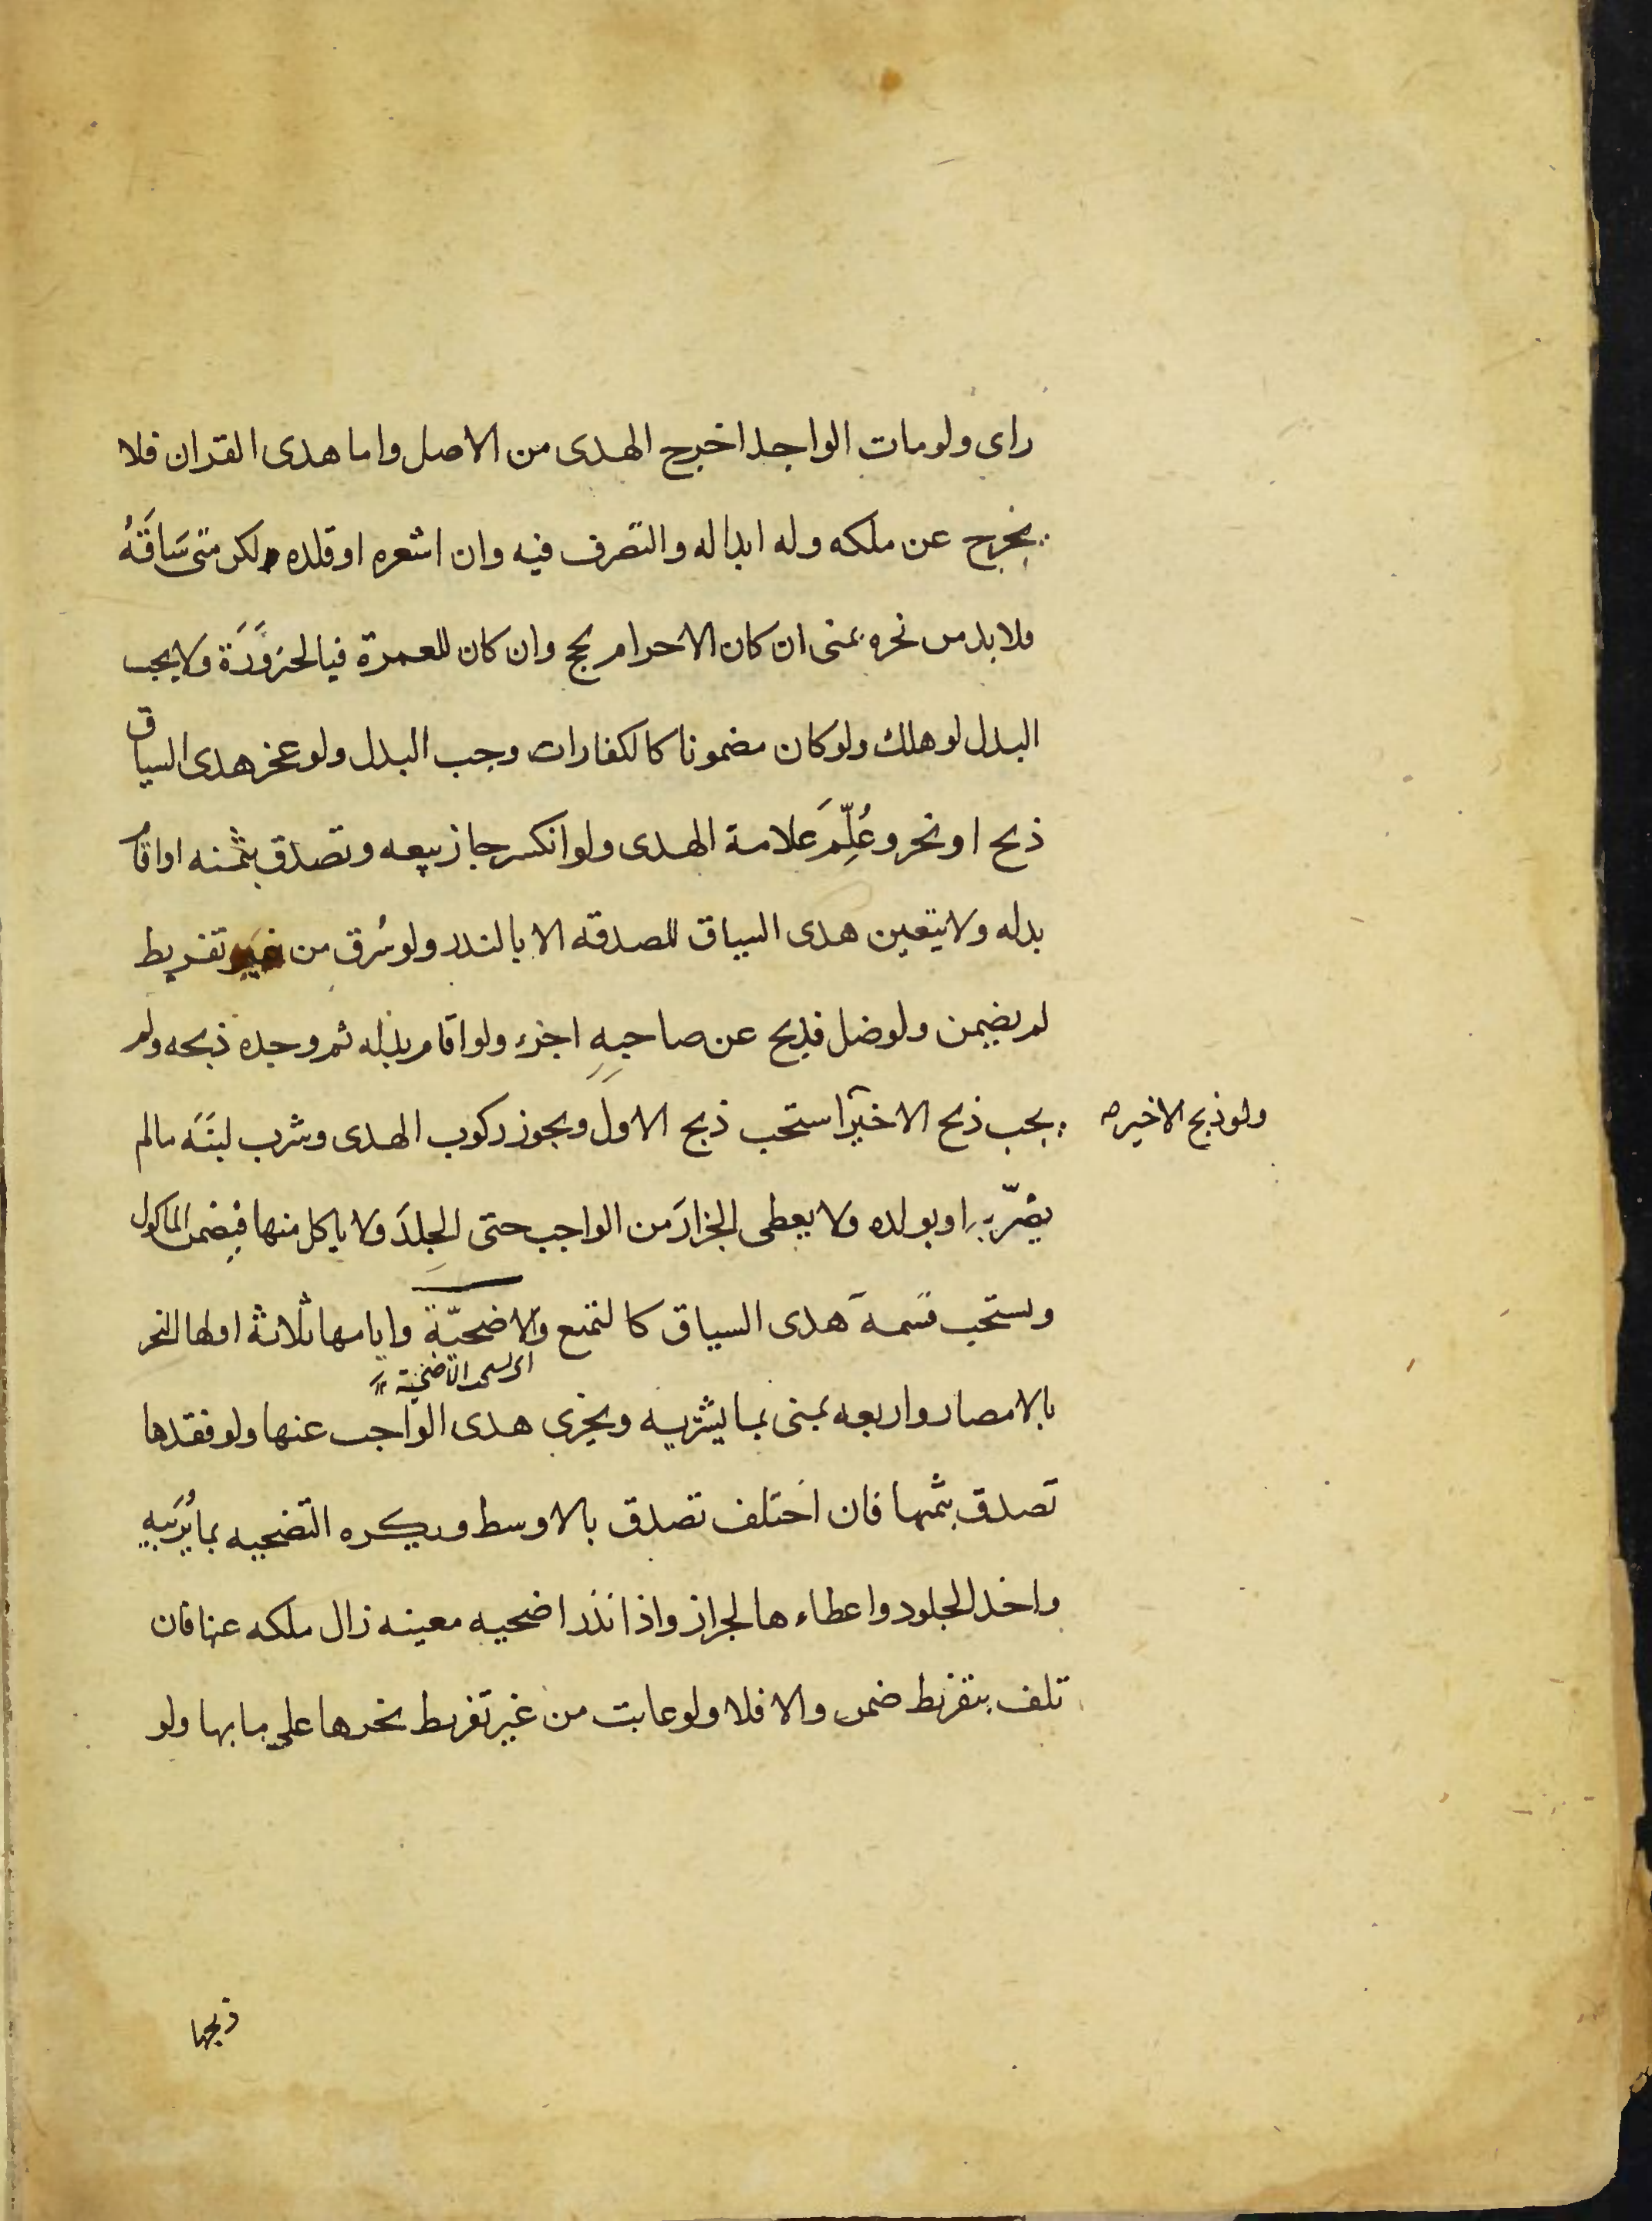 راى ولو مات الواجد اخرج الهدى من الاصل واما هدى القران فلا
يخرج عن ملكه وله ابداله والتصرف فيه وان اشعره او قلده ولكن متى سَاقَهُ
فلا بد من نحره بمنى ان كان الاحرام بحج وان كان للعمرة فبالحزوَرَة ولا يجب
البدل لو هلك ولو كان مضمونا كالكفارات وجب البدل ولو عجز هدى السياق
ذبح او نحر وعُلِّمَ علامة الهدى ولو انكسر جاز بيعه وتصدق بثمنه او اقام
بدله ولا يتعين هدى السياق للصدقه الا بالندر ولو سُرق من غير تفريط
لم يضمن ولو ضل فذبح عن صاحبِهِ اجزء ولو اقام بدله ثم وجده ذبحه ولم
يجب ذبح الاخير استحب ذبح الاول ويجوز ركوب الهدى وشرب لبنَه مالم
ولو ذبح الاخير صح
يضرّ به او بولده ولا يعطى الجزارَ من الواجب حتى الجِلدَ ولا ياكل منها فيضمن الماكول
ويستحب قسمة هدى السياق كالتمتع والاضحيّة وايامها ثلاثة اولها النحر
بالامصار واربعه بمنى بما يشتريه ويجزى هدى الواجب عنها ولو فقدها
تصدق بثمنها فان اختلف تصدق بالاوسط ويكره التضحيه بما يُرَبيه
واخذ الجلود واعطاءها لجزاز واذا نذر اضحيه معينه زال ملكه عنها فان
تلف بتفريط ضمن والا فلا ولو عابت من غير تفريط نحرها على ما بها ولو
ذبحها